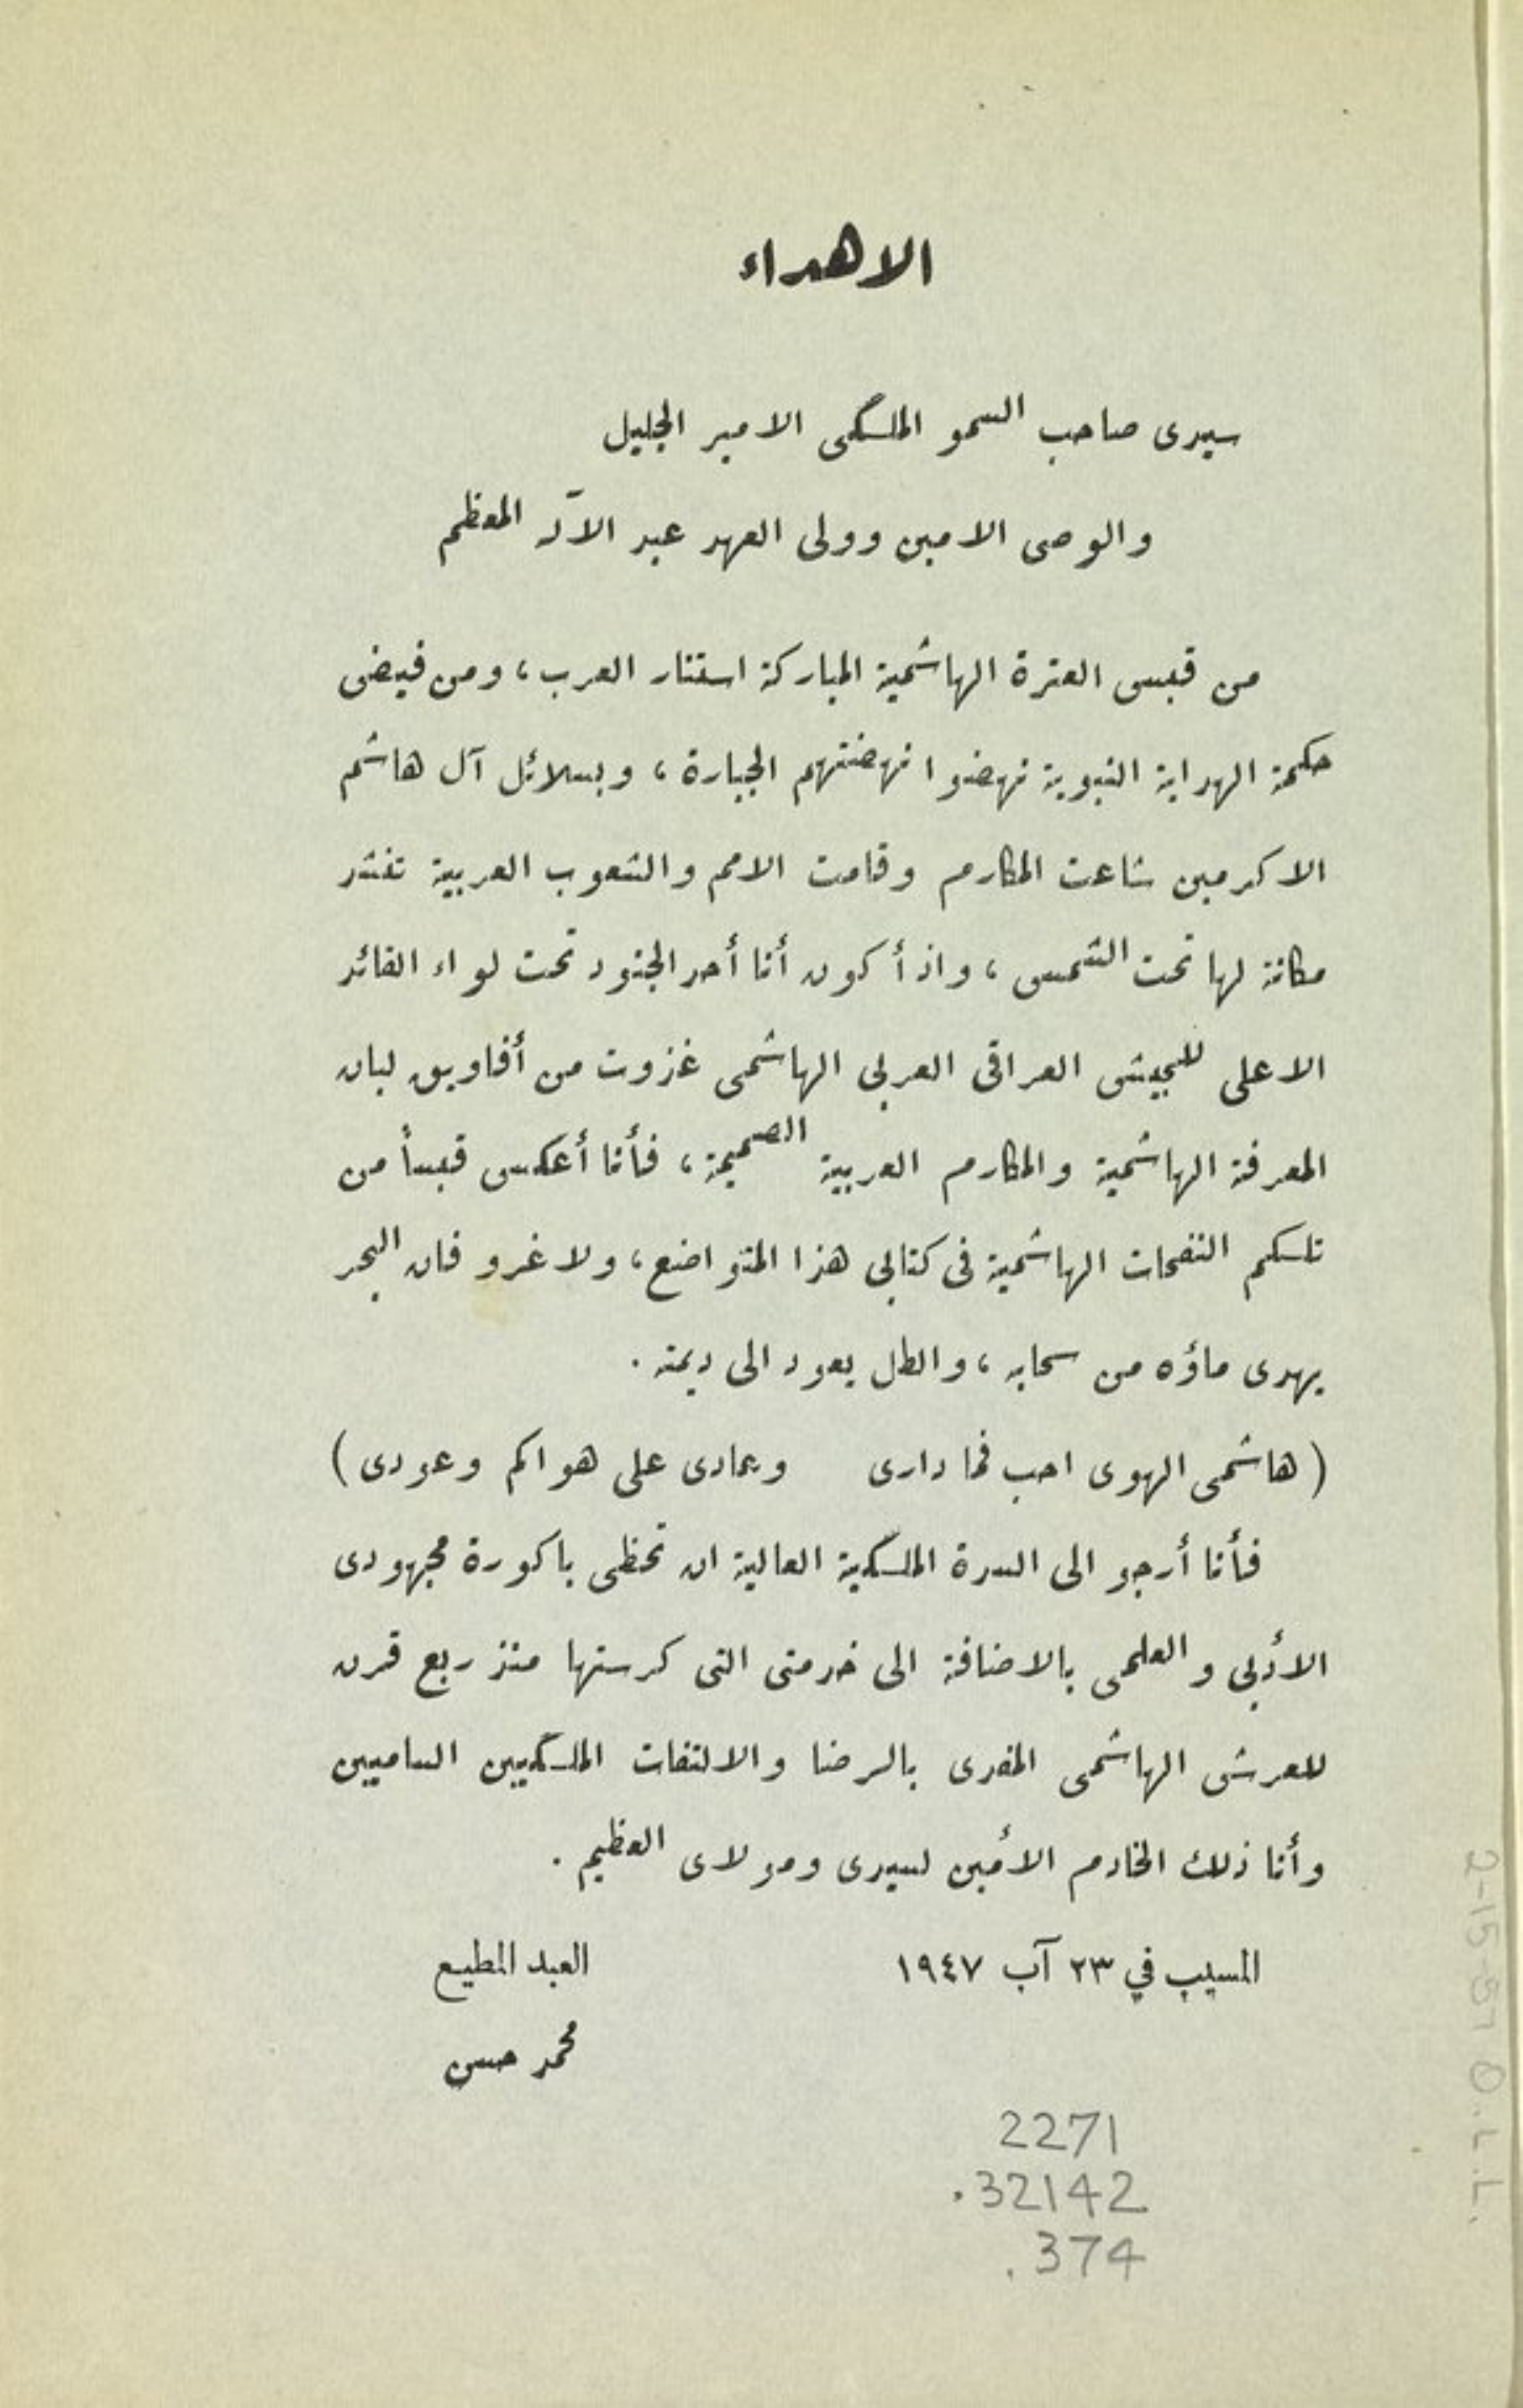 الاهداء
سيدى صاحب السمو الملكى الامير الجليل
والوصى الامين وولى العهد عبد الآله المعظم
من قبس العترة الهاشمية المباركة استنار العرب، ومن فيض
حكمة الهداية النبوية نهضوا نهضتهم الجبارة، وبسلائل آل هاشم
الاكرمين شاعت المكارم وقامت الامم والشعوب العربية تنشد
مكانة لها تحت الشمس، واذ أكون أنا أحد الجنود تحت لواء القائد
الاعلى للجيش العراقى العربى الهاشمى غزوت من أفاويق لبان
المعرفة الهاشمية والمكارم العربية الصميمة، فأنا أعكس قبسأ من
تلسكم النفحات الهاشمية فى كتابى هذا المتواضع، ولا غرو فان البحر
يهدى ماؤه من سحابه، والطل يعود الى ديمته .
( هاشمى الهوى احب فما دارى وعادى على هواكم وعودى )
فأنا أرجو الى السدة الملكية العالية ان تحظى باكورة مجهودى
الأدبى والعلمى بالاضافة الى خدمتى التى كرستها منذ ربع قرن
للعرش الهاشمى المفدى بالرضا والالتفات الملكيين الساميين
وأنا ذلك الخادم الأمين لسيدى ومولاى العظيم .
المسيب في ٢٣ آب ١٩٤٧ العبد المطيع
محمد حسن
2271
.32142
.374
2-15-51 O.L.L.